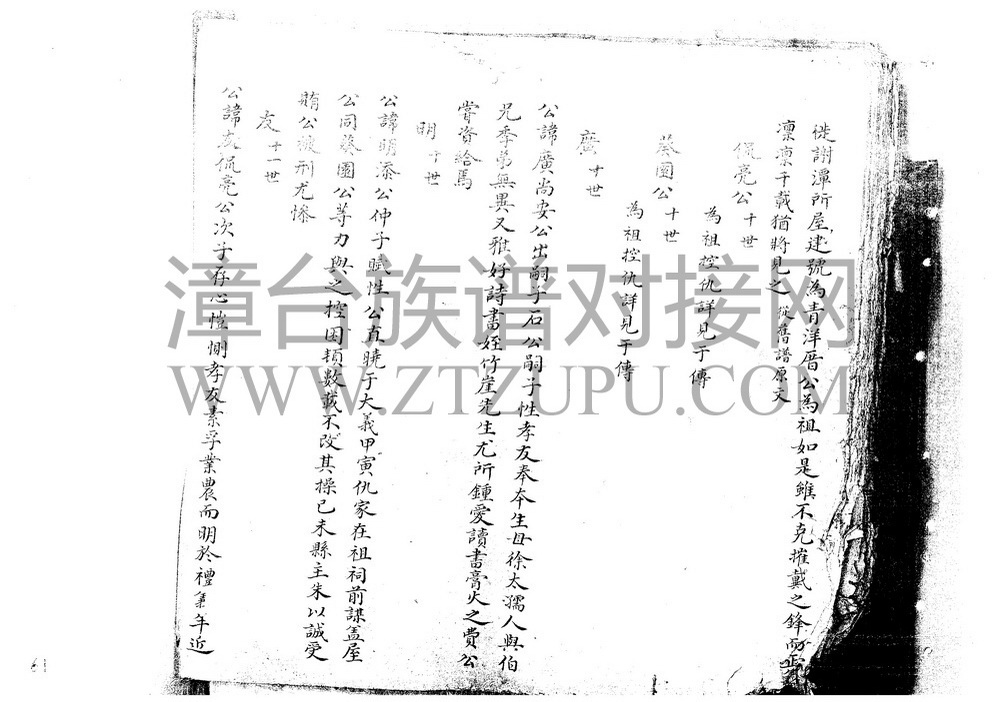 徙謝潭所屋建號為青洋厝公為祖如是雖不克摧戴之鋒而
凜凜千載猶將見之 從舊譜原文
侃亮公 十世
為祖控仇詳見于傳
葵園公 十世
為祖控仇詳見于傳
廣 十世
公諱廣尚安公出嗣子石公嗣子性孝友奉本生母徐太孺人與伯
兄季弟無異又雅好詩書姪竹崖先生尤所鍾愛讀書膏火之費公
嘗資給焉
明 十世
公諱明添公仲子賦性公直曉于大義甲寅仇家在祖祠前謀蓋屋
公同葵園公等力與之控困頓數載不改其操已未縣主朱以誠受
賄公被刑尤慘
友 十一世
公諱友侃亮公次子存心愷惻孝友素孚業農而明於禮年近
漳台族谱对接网
WWW.ZTZUPU.COM